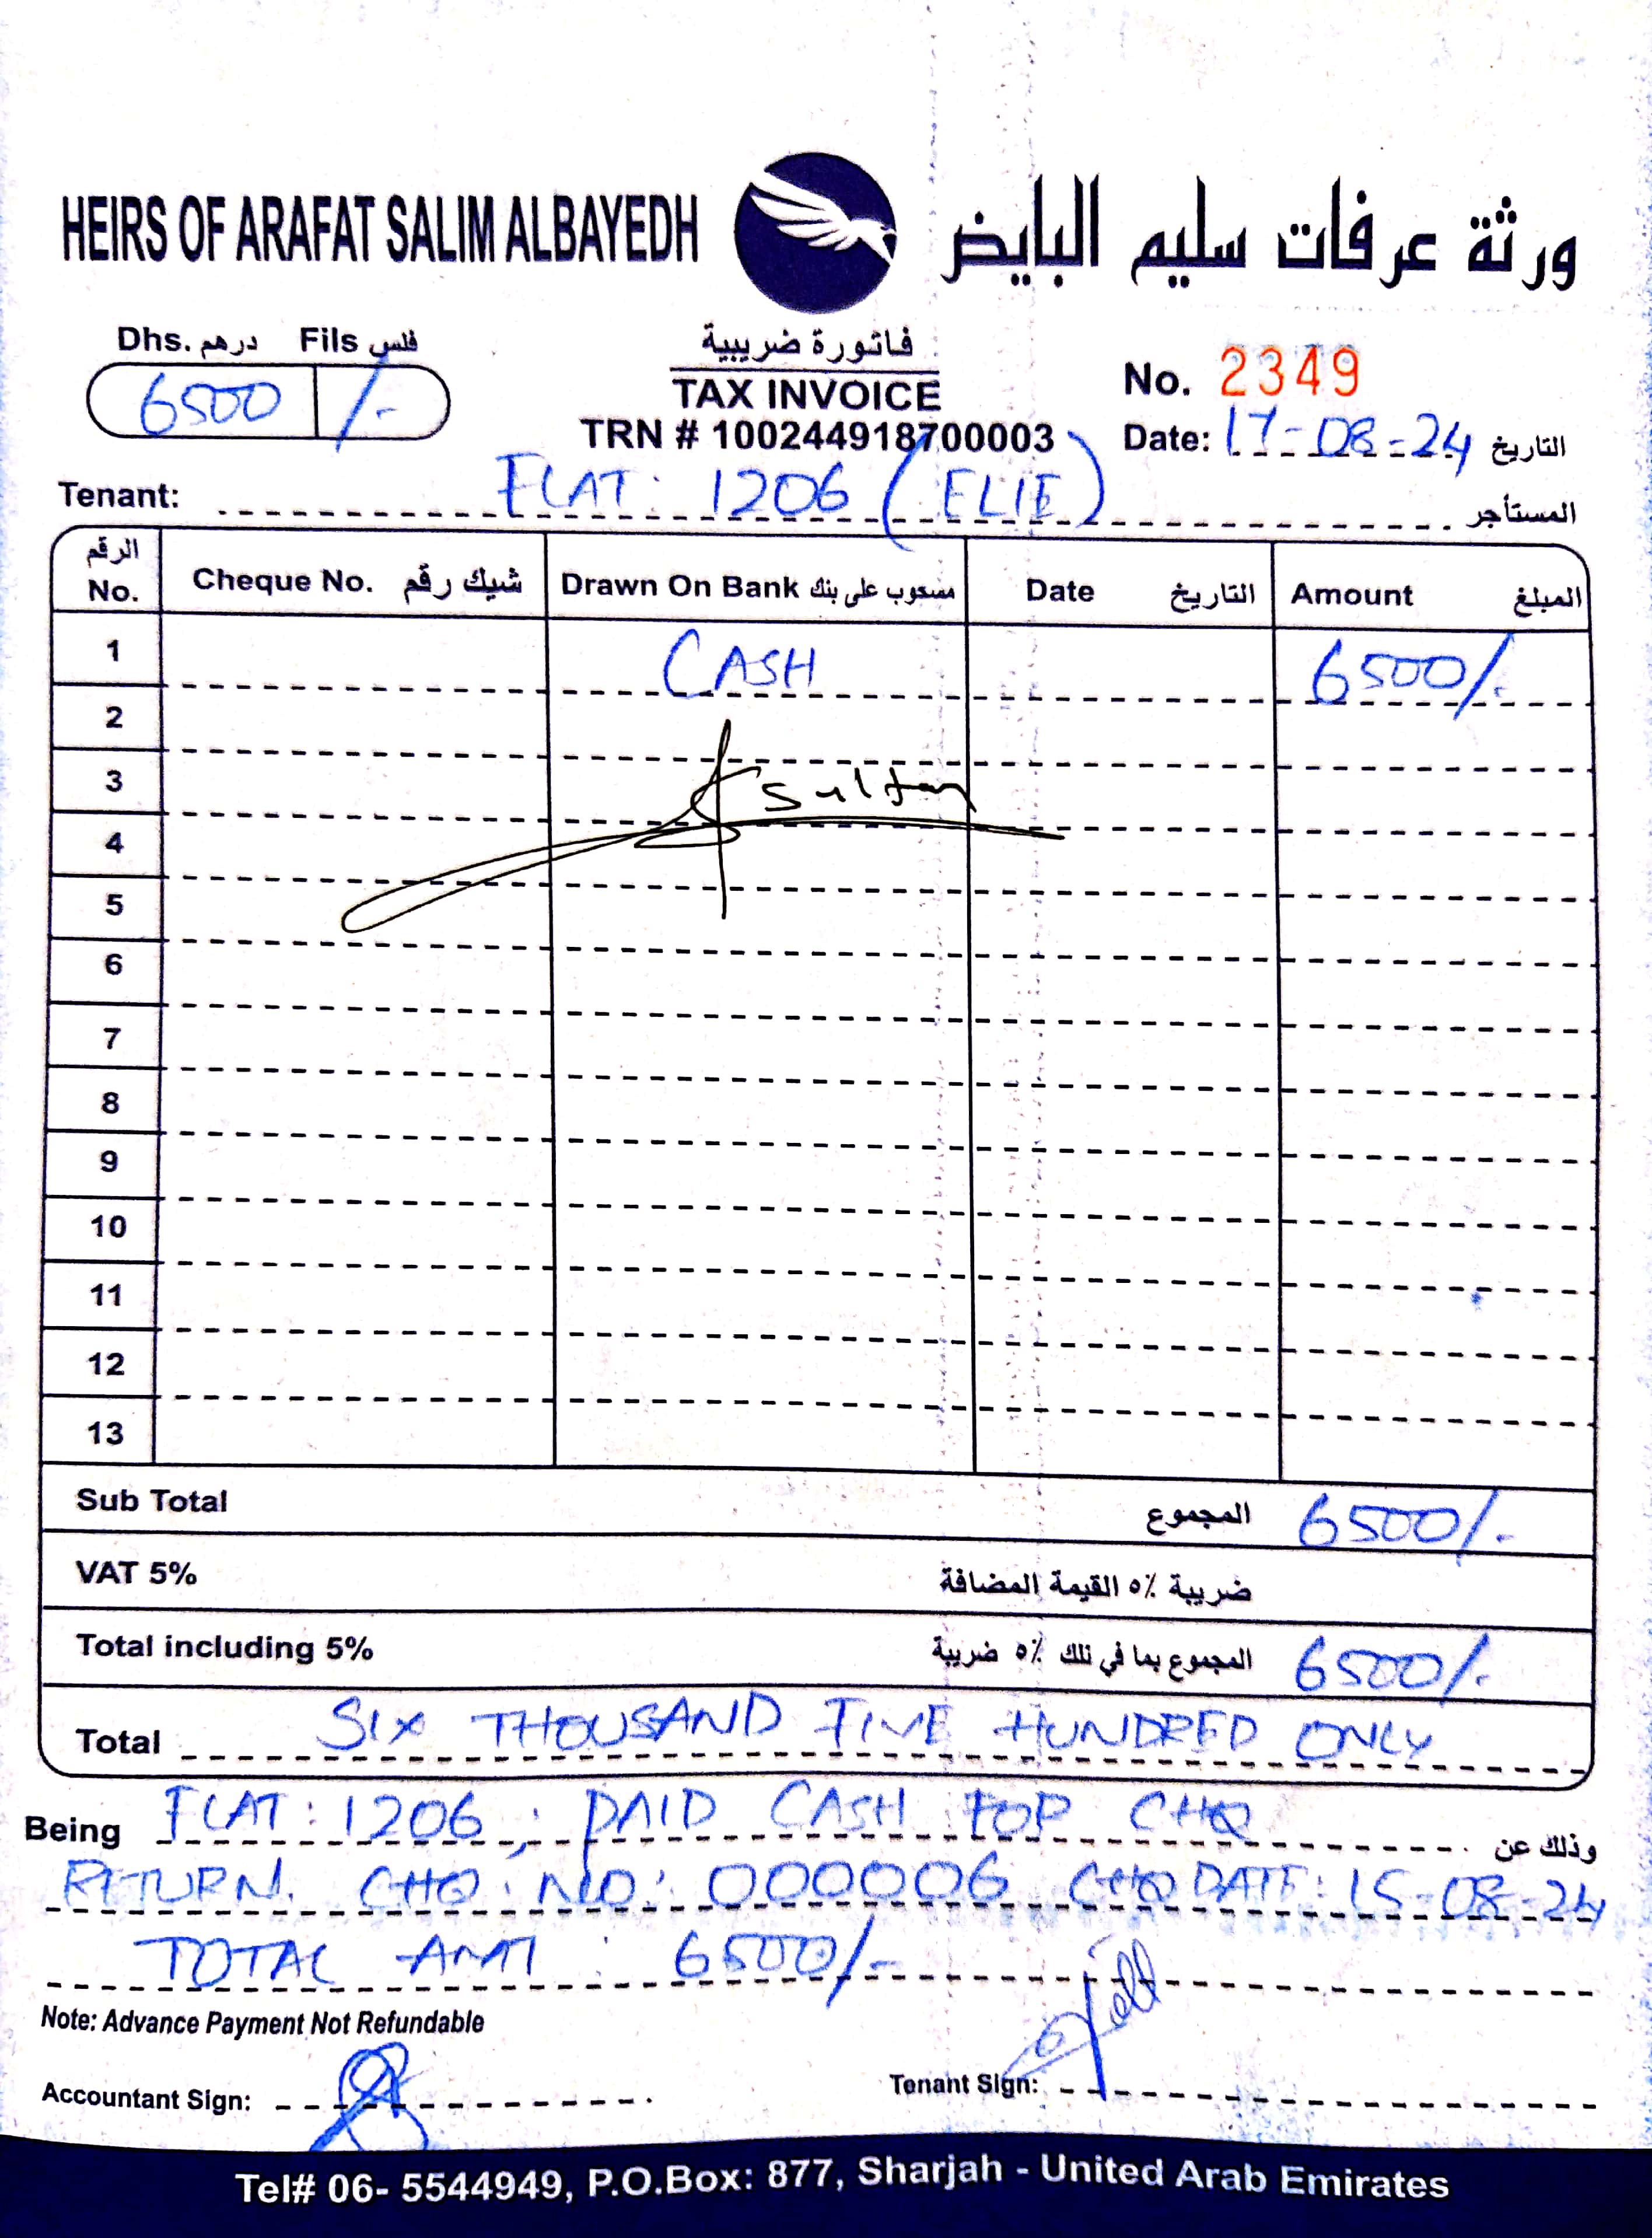 HEIRS OF ARAFAT SALIM ALBAYEDH ورثة عرفات سليم البايض
Dhs. درهم Fils فلس
6500 /-
فاتورة ضريبية
TAX INVOICE
TRN # 100244918700003
No. 2349
Date: 17-08-24 التاريخ
Tenant: FLAT: 1206 (ELIE) المستأجر
الرقم No. Cheque No. شيك رقم Drawn On Bank مسحوب على بنك Date التاريخ Amount المبلغ
1 CASH 6500/-
2
3 Sultan
4
5
6
7
8
9
10
11
12
13
Sub Total المجموع 6500/-
VAT 5% ضريبة ٥٪ القيمة المضافة
Total including 5% المجموع بما في تلك ٥٪ ضريبة 6500/-
Total SIX THOUSAND FIVE HUNDRED ONLY
Being FLAT: 1206, PAID CASH FOR CHQ وذلك عن
RETURN. CHQ. NO: 000006 CHQ DATE: 15-08-24
TOTAL AMT : 6500/-
Note: Advance Payment Not Refundable
Accountant Sign: Tenant Sign:
Tel# 06- 5544949, P.O.Box: 877, Sharjah - United Arab Emirates